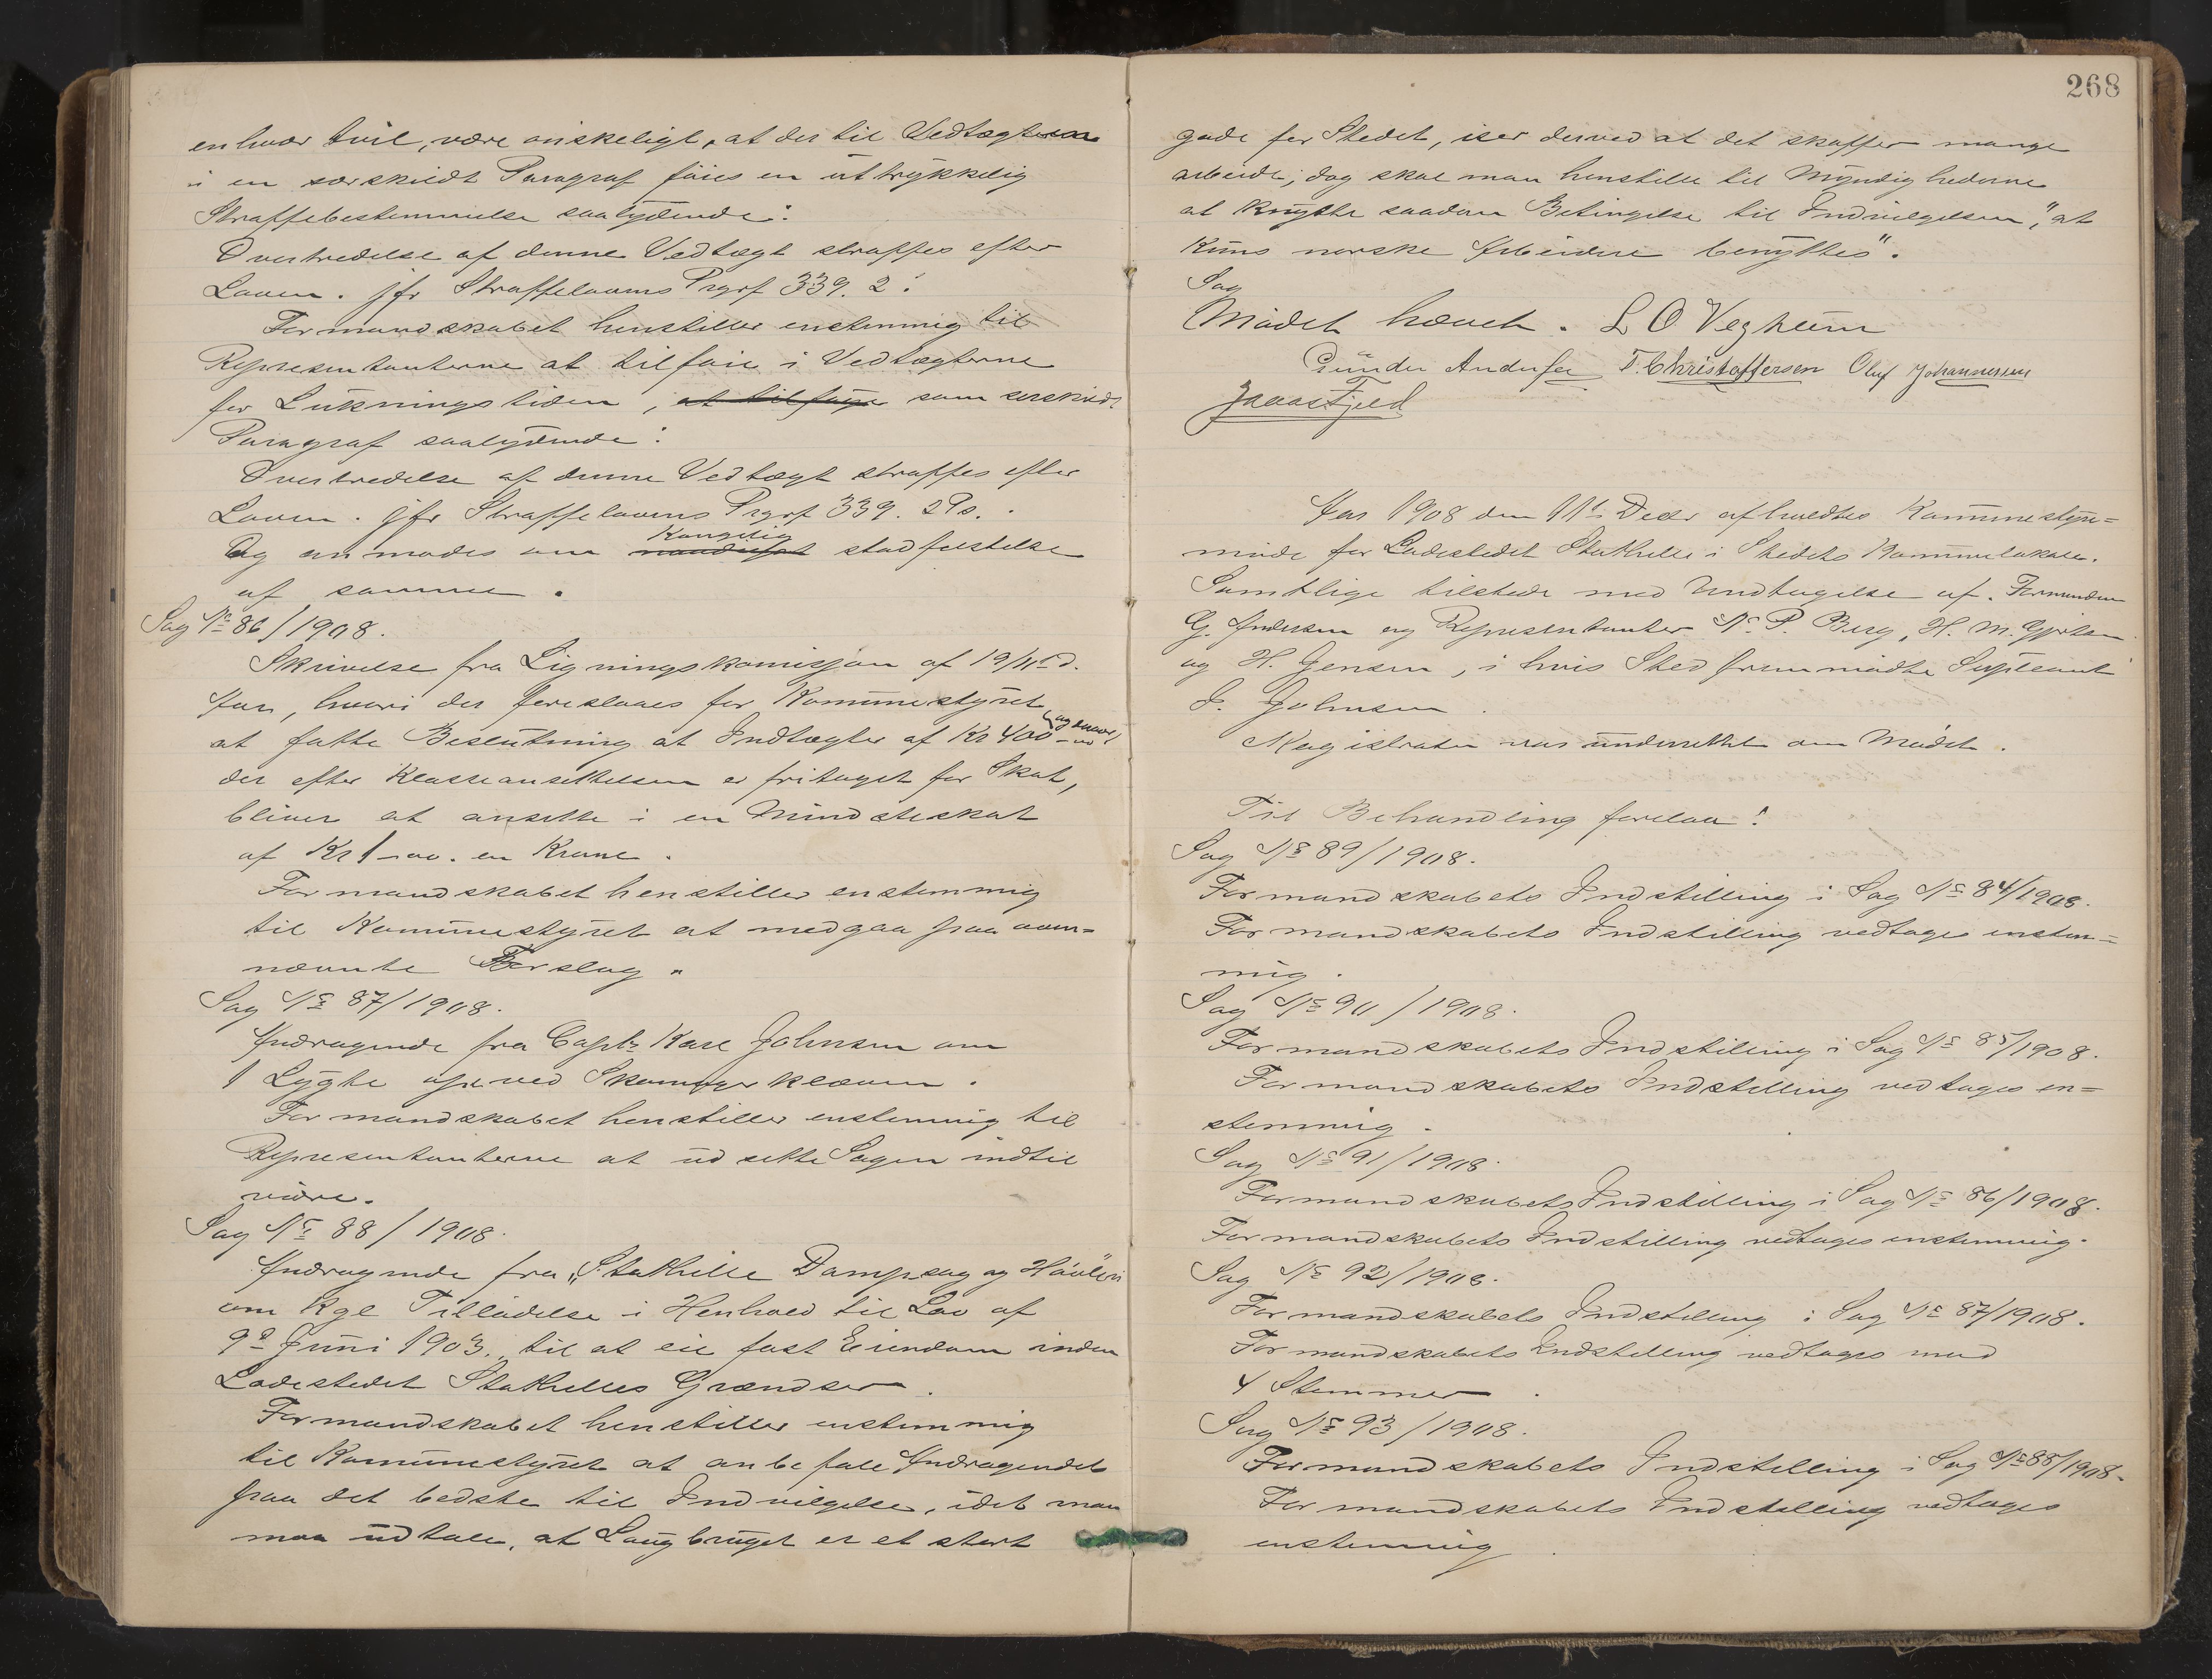 enhver tvil, være ønskeligt, at der til Vedtægterne
i en særskildt Paragraf føies en uttrykkelig
Straffebestemmelse saalydende:
Overtredelse af denne Vedtægt straffes efter
Loven. jfr Straffelovens Prgrf 339. 2:
Formandskabet henstiller enstemmig til
Representanterne at tilføie i Vedtægterne
for Lukningstiden, at tilføye som serskildt
Paragraf saalydende:
Overtredelse af denne Vedtægt straffes efter
Loven. jfr Straffelovens Prgrf 339. 2 Ps.
Kongelig
Og anmodes om stadfæstelse
af samme.
Sag No 86/1908.
Skrivelse fra Ligningskomisjon af 19/11 d.
Aar, hvori der foreslaaes for Kommunestyret
at fatte Beslutning at Indtægter af Kr 400 -
der efter Klasseansettelsen er fritaget for Skat,
bliver at ansette i en Mindsteskat
af Kr 1-00. en Krone.
Formandskabet henstiller enstemmig
til Kommunestyret at medgaa paa oven=
nævnte Forslag.
Sag No 87/1908.
Andragende fra Capt. Karl Johnsen om
1 Lygte oppe ved Skomagerkleven.
Formandskabet henstiller enstemmig til
Representanterne at udsette Sagen indtil
videre.
Sag No 88/1908.
Andragende fra "Stathelle Dampsag og Høvleri
om Kgl Tilladelse i Henhold til Lov af
9d Juni 1903. til at eie fast Eiendom inden
Ladestedet Stathelles Grændser.
Formandskabet henstiller enstemmig
til Kommunestyret at anbefale Andragendet
paa det bedste til Indvilgelse, idet man
maa udtale, at Saugbruget er et stort
268
gode for Stedet, iser derved at det skaffer mange
arbeide; dog skal man henstille til Myndighederne
at knytte saadan Betingelse til Indvilgelsen, "at
kuns norske Arbeidere benyttes".
Sag
Mødet hævet. L O Vegheim
Gunder Andersen T. Christoffersen Oluf Johannessen
Aar 1908 den 11te Decbr afholdtes Kommunestyre=
møde for Ladestedet Stathelle i Stedets Kommunelokale.
Samtlige tilstede med Undtagelse af. Formanden
G. Andersen og Representanter N. P. Berg, H. M. Gjertsen
og H. Jensen, i hvis Sted fremmødte Supleant
J. Johnsen.
Magistraten var underrettet om Mødet.
Til Behandling forelaa:
Sag No 89/1908.
Formandskabets Indstilling i Sag No 84/1908.
Formandskabets Indstilling vedtages enstem=
mig.
Sag No 90/1908.
Formandskabets Indstilling i Sag No 85/1908.
Formandskabets Indstilling vedtages en=
stemmig.
Sag No 91/1908.
Formandskabets Indstilling i Sag No 86/1908.
Formandskabets Indstilling vedtages enstemmig.
Sag No 92/1908.
Formandskabets Indstilling i Sag No 87/1908.
Formandskabets Indstilling vedtages med
4 Stemmer.
Sag No 93/1908.
Formandskabets Indstilling i Sag No 88/1908.
Formandskabets Indstilling vedtages
enstemmig.